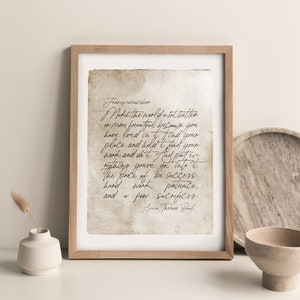 Make the world a bit better
or more beautiful because you
have lived in it. Find your
place and hold it find your
work and do it. And put
you go into it
the price of success:
hard work, patience,
and a few sacrifices.